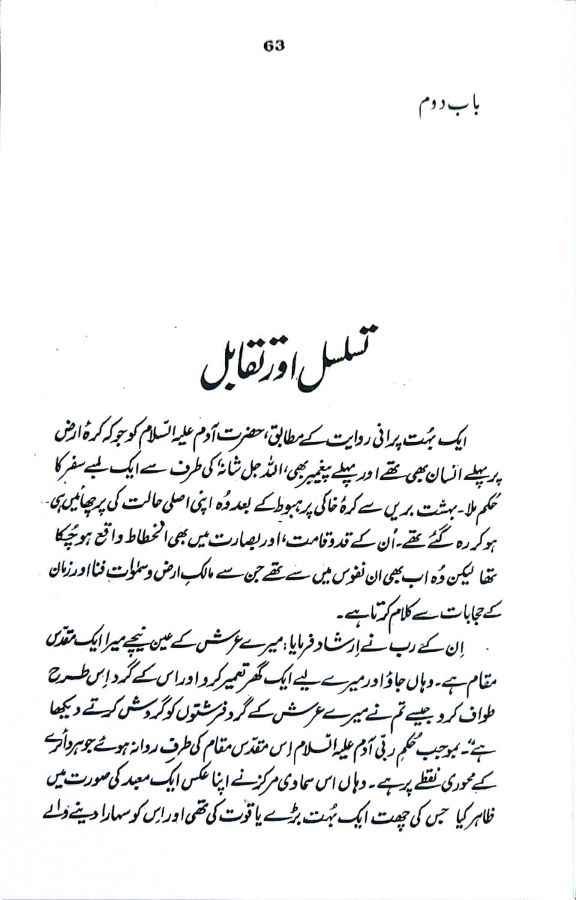 63
باب دوم
تسلسل اور تقابل
ایک بہت پرانی روایت کے مطابق، حضرت آدم علیہ السلام کو جو کہ کرۂ ارض
پر پہلے انسان بھی تھے اور پہلے پیغمبر بھی، اللہ جل شانہٗ کی طرف سے ایک لمبے سفر کا
حکم ملا۔ بہشت بریں سے کرۂ خاکی پر ہبوط کے بعد وُہ اپنی اصلی حالت کی پرچھائیں ہی
ہو کر رہ گئے تھے۔ اُن کے قد و قامت، اور بصارت میں بھی انحطاط واقع ہو چُکا
تھا لیکن وُہ اب بھی ان نفوس میں سے تھے جن سے مالکِ ارض و سمٰوات فنا اور زمان
کے حجابات سے کلام کرتا ہے۔
اِن کے رب نے اِرشاد فرمایا: میرے عرش کے عین نیچے میرا ایک مقدّس
مقام ہے۔ وہاں جاؤ اور میرے لیے ایک گھر تعمیر کرو اور اس کے گرد اِس طرح
طواف کرو جیسے تم نے میرے عرش کے گرد فرشتوں کو گردش کرتے دیکھا
ہے“۔ بموجب حُکمِ ربّی آدم علیہ السلام اِس مقدّس مقام کی طرف روانہ ہوئے جو ہر دائرے
کے محوری نقطے پر ہے۔ وہاں اس سماوی مرکز نے اپنا عکس ایک معبد کی صورت میں
ظاہر کیا جس کی چھت ایک بہت بڑے یاقوت کی تھی اور اِس کو سہارا دینے والے